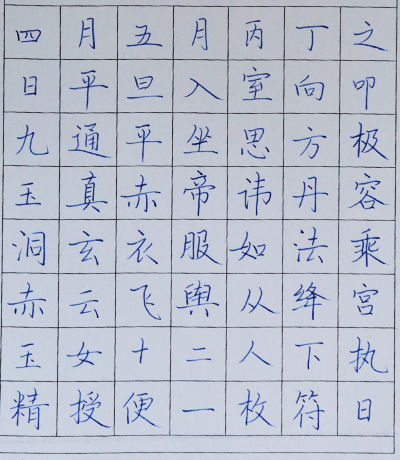 四月五月丙丁之
日平旦入室向叩
九通平坐思方极
玉真赤帝讳丹容
洞玄衣服如法乘
赤云飞舆从绛宫
玉女十二人下执
精授便一枚符日